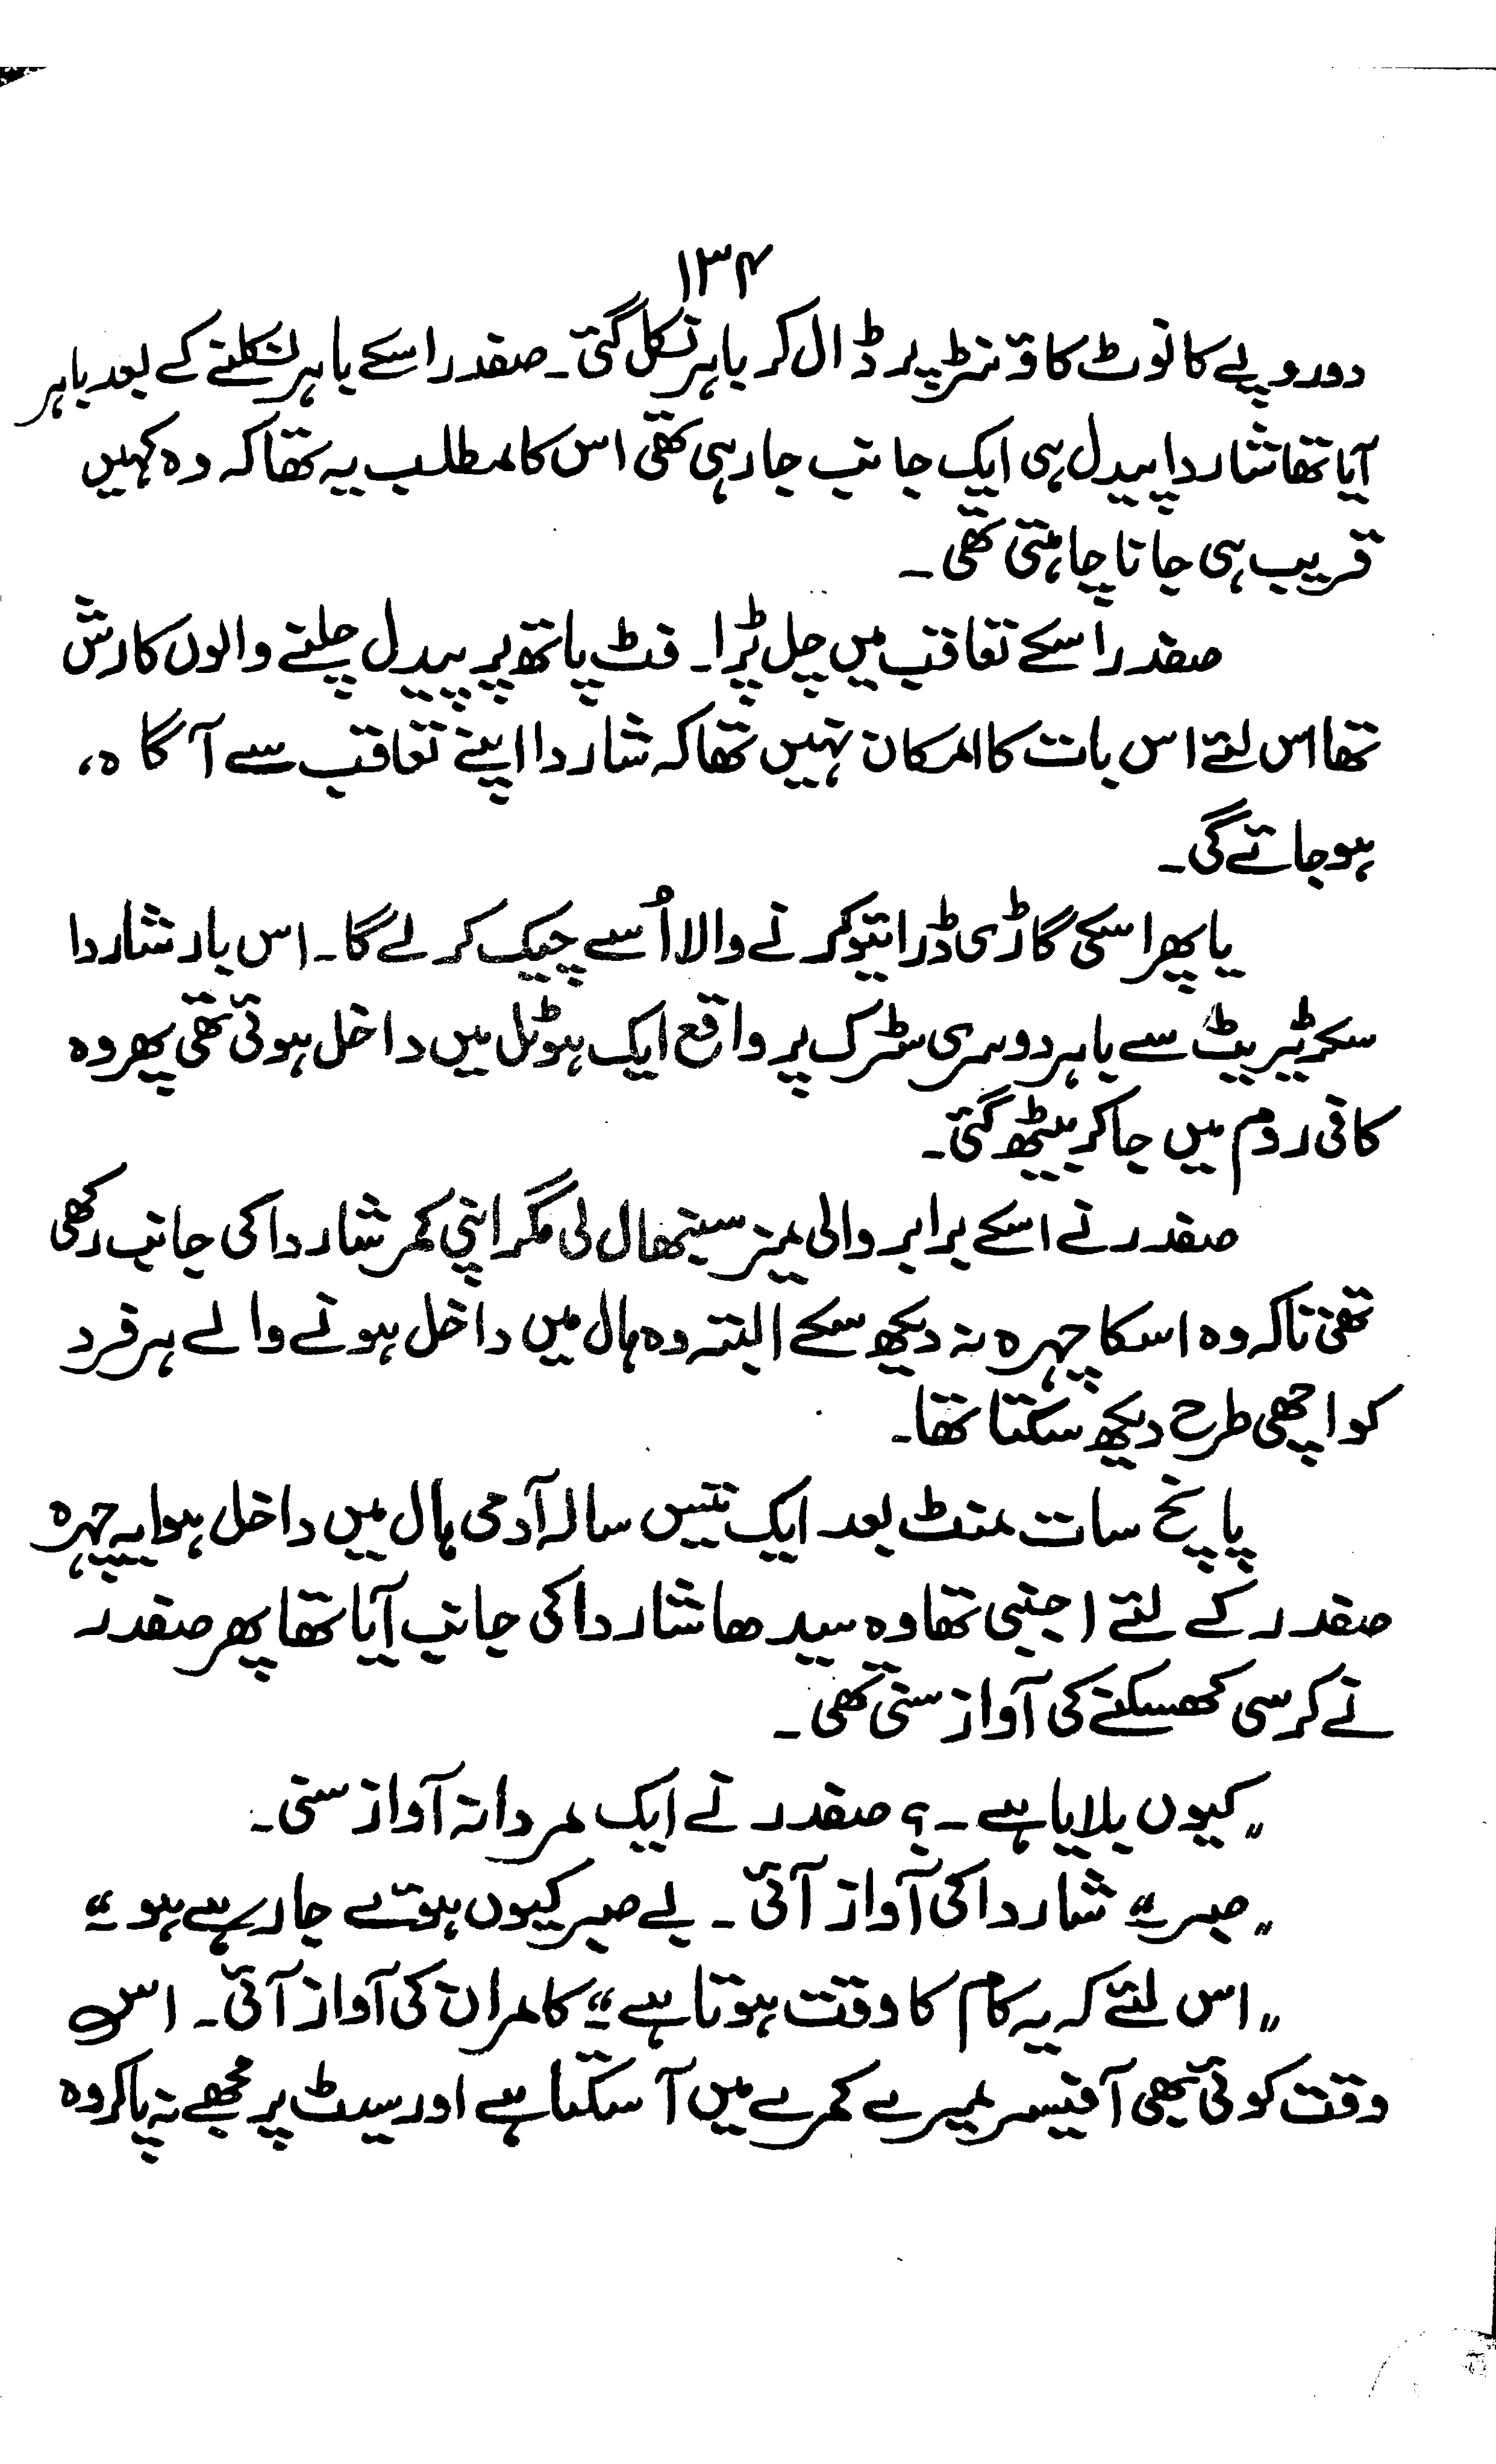 ۱۳۴
دو روپے کا نوٹ کاؤنٹر پر ڈال کر باہر نکل گئی۔ صفدر اسکے باہر نکلنے کے بعد باہر
آیا تھا شاردا پیدل ہی ایک جانب جا رہی تھی اس کا مطلب یہ تھا کہ وہ کہیں
قریب ہی جانا چاہتی تھی۔
صفدر اسکے تعاقب میں چل پڑا۔ فٹ پاتھ پر پیدل چلنے والوں کا رش
تھا اس لئے اس بات کا امکان نہیں تھا کہ شاردا اپنے تعاقب سے آگاہ،
ہو جائے گی۔
یا پھر اسکی گاڑی ڈرائیو کرنے والا اُسے چیک کر لے گا۔ اس بار شاردا
سکرٹیریٹ سے باہر دوسری سڑک پر واقع ایک ہوٹل میں داخل ہوئی تھی پھر وہ
کافی روم میں جا کر بیٹھ گئی۔
صفدر نے اسکے برابر والی میز سینبھال لی مگر اپنی کمر شاردا کی جانب رکھی
تھی تاکہ وہ اسکا چہرہ نہ دیکھ سکے البتہ وہ ہال میں داخل ہونے والے ہر فرد
کو اچھی طرح دیکھ سکتا تھا۔
پانچ سات منٹ بعد ایک تیس سالہ آدمی ہال میں داخل ہوا یہ چہرہ
صفدر کے لئے اجنبی تھا وہ سیدھا شاردا کی جانب آیا تھا پھر صفدر
نے کرسی کھسکنے کی آواز سنی تھی۔
"کیوں بلایا ہے ۔؟ صفدر نے ایک مردانہ آواز سنی۔
"صبر۔" شاردا کی آواز آئی۔ بے صبر کیوں ہوئے جا رہے ہو۔"
"اس لئے کہ یہ کام کا وقت ہوتا ہے۔" کامران کی آواز آئی۔ اس
وقت کوئی بھی آفیسر میرے کمرے میں آ سکتا ہے اور سیٹ پر مجھے نہ پا کر وہ